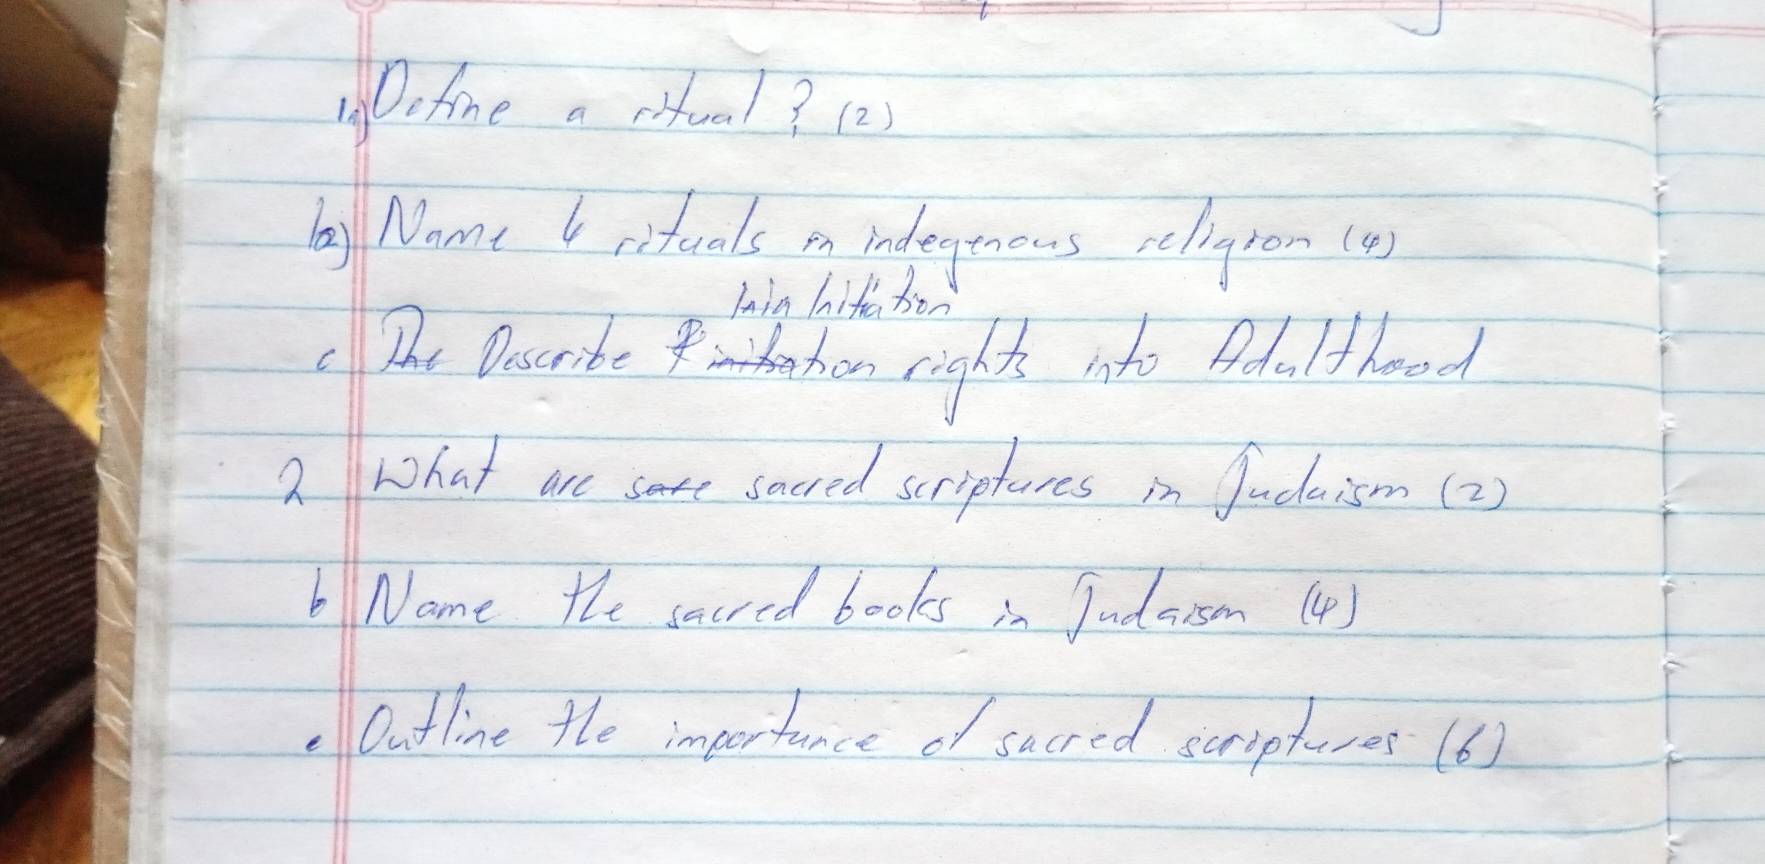 1a) Define a ritual ? (2)
b) Name 4 rituals in indegenous religion (4)
Initiation
c The Describe initiation rights into Adulthood
2 What are sare sacred scriptures in Judaism (2)
b Name the sacred books in Judaism (4)
c Outline the importance of sacred scriptures (6)